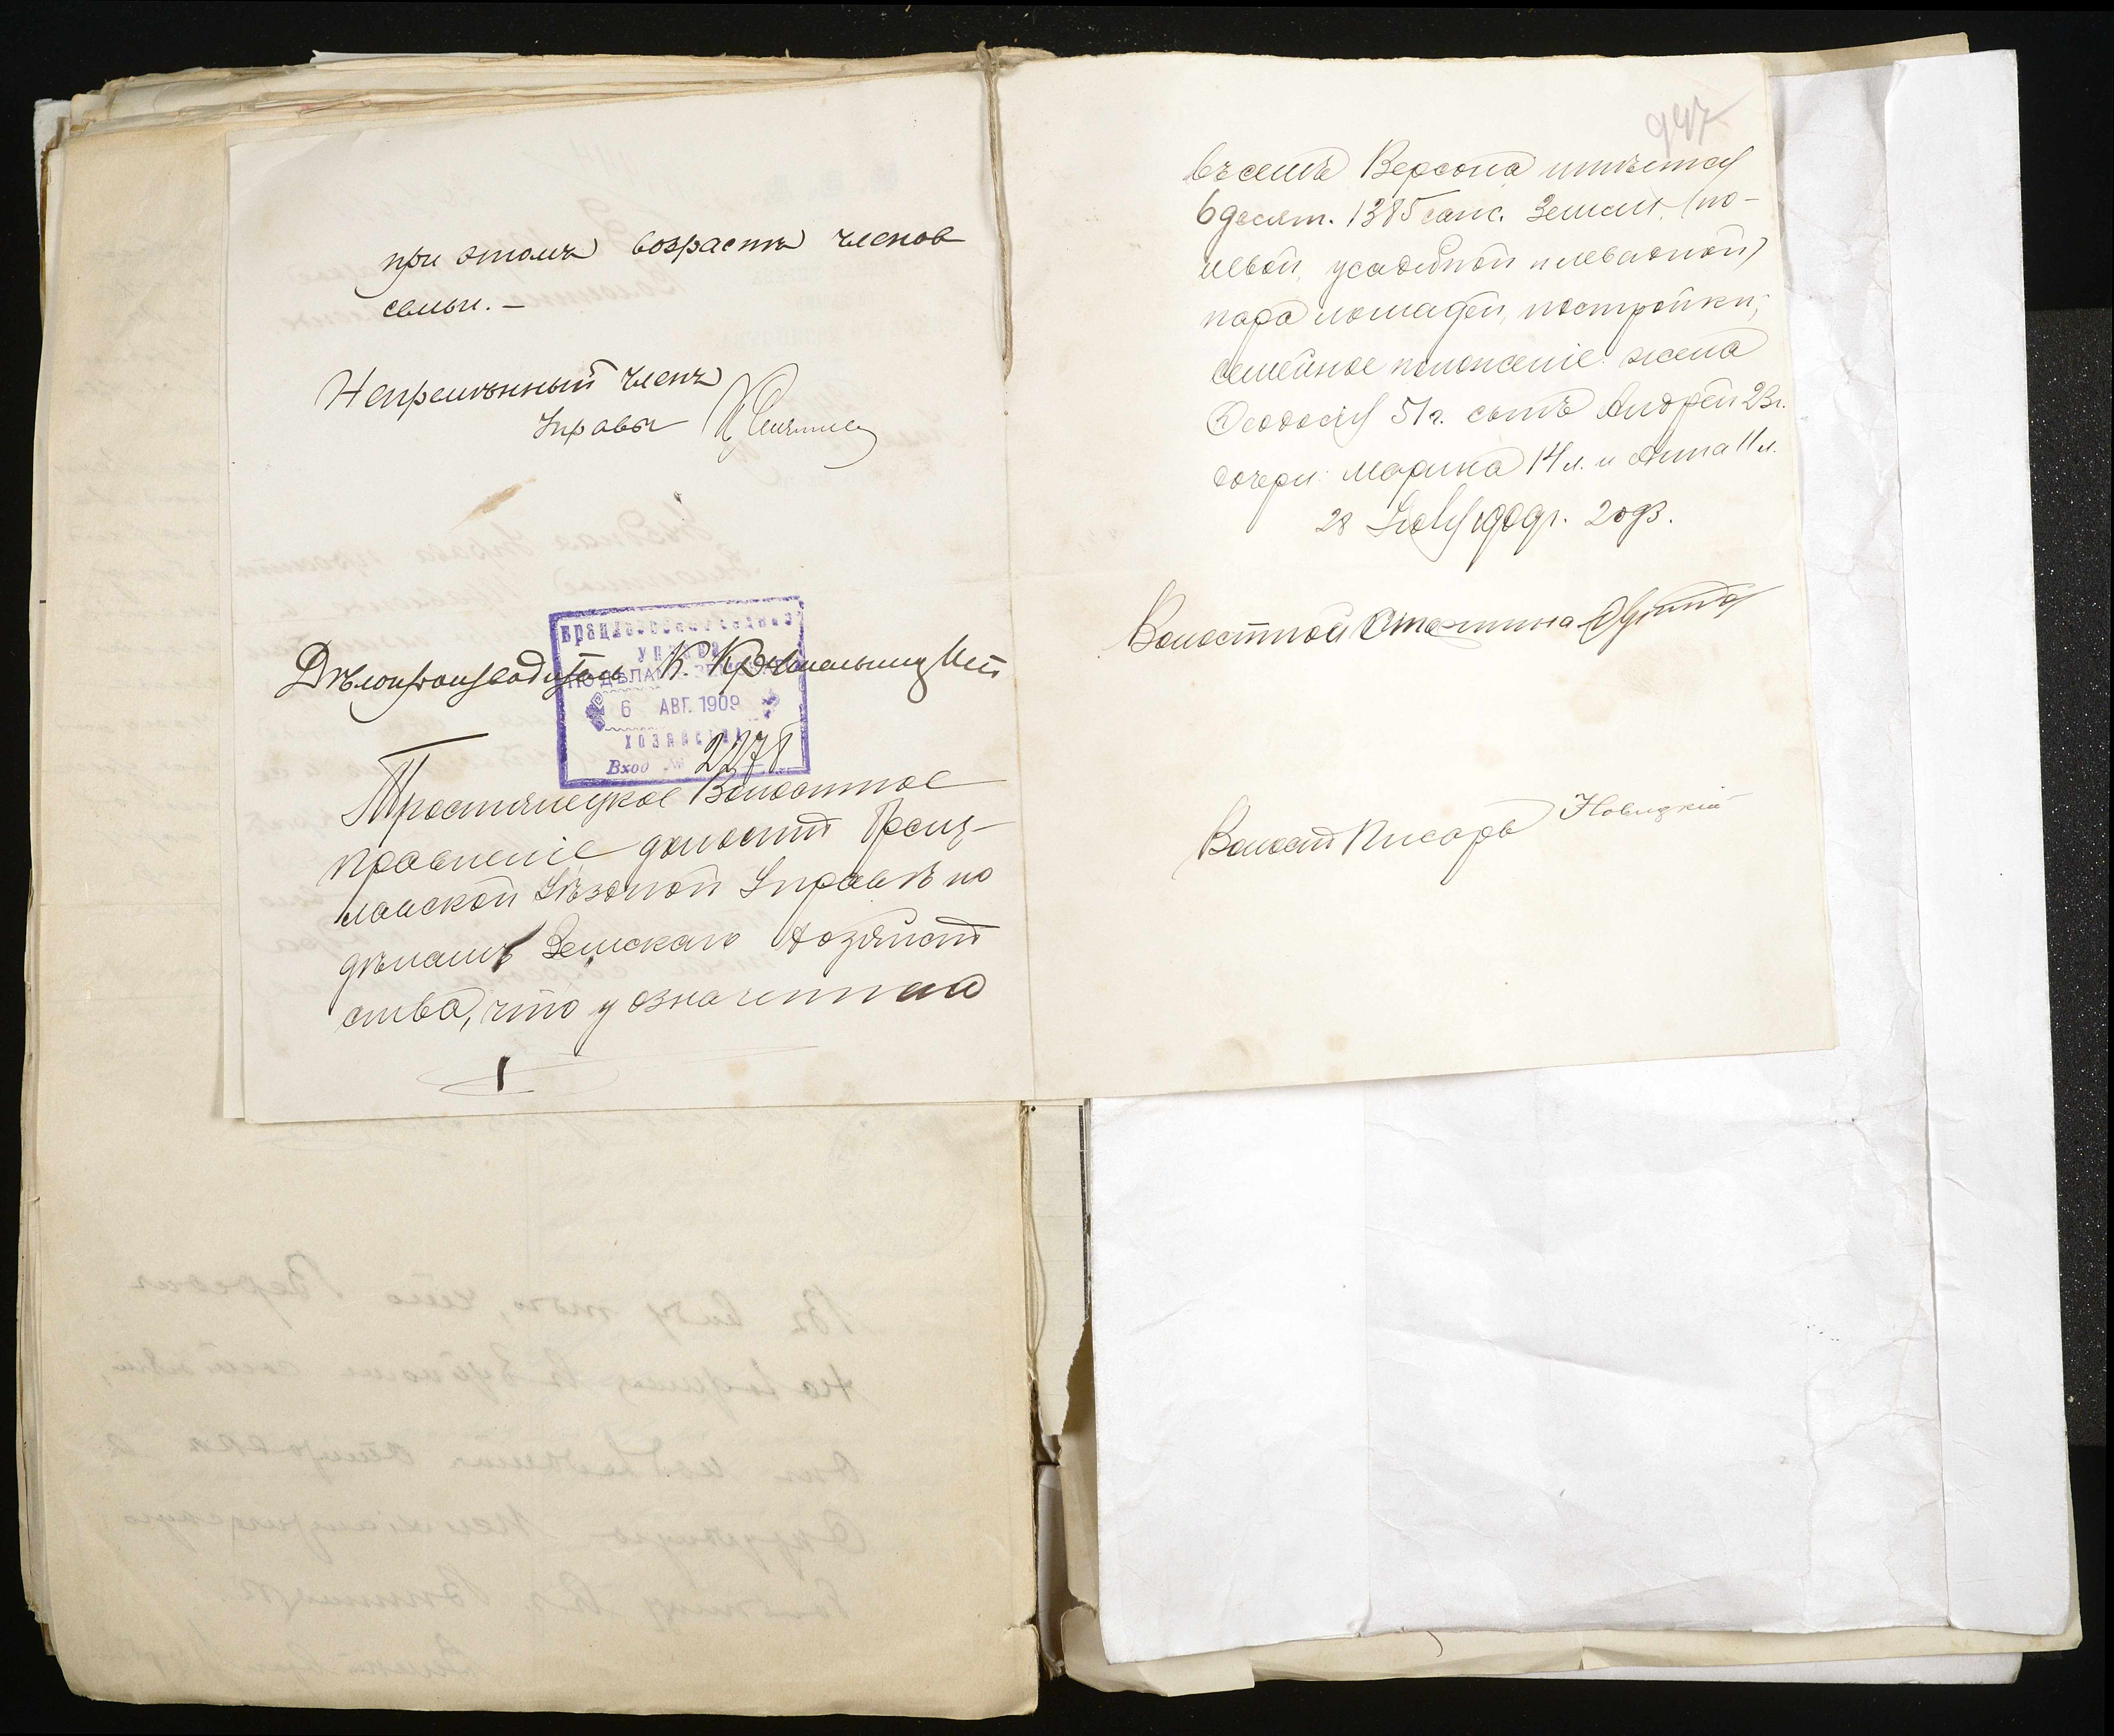 при этомъ возрастъ членовъ
семьи. —
Непремѣнный Членъ
Управы
Дѣлопроизводитель К.
УПРАВА
ПО ДѢЛАМЪ ЗЕМСКАГО
6 АВГ. 1909
ХОЗЯЙСТВА
Вход № 2278
Тростянецкое Волостное
Правленіе доноситъ Брац-
лавской Уѣздной Управѣ по
дѣламъ Земскаго Хозяйст
ства, что у означеннаго
947
въ семъ Версона имѣется
6 десят. 1385 саж. Земли, (по-
левой, усадебной и левадной)
пара лошадей, постройки;
семейное положеніе: жена
Феодосія 51 г. сынъ Андрей 23 г.
дочери: Марина 14 л. и Анна 11 л.
28 Іюля 1909 г.
Волостной Старшина
Волостн Писарь Новицкій